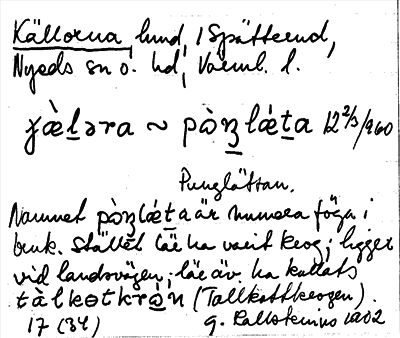 Källorna, lund, i Spätterud,
Nyeds sn o. hd, Värml. l.
ɟæ̀lǝra ~ pòŋlǽta 12 2/3 1960
Punglättan.
Namnet pòŋlǽta är numera föga i
bruk. Stället lär ha varit krog; ligger
vid landsvägen; lär äv. ha kallats
tàlkɵtkròn (Tallkottkrogen).
17 (34) G. Kallstenius 1902